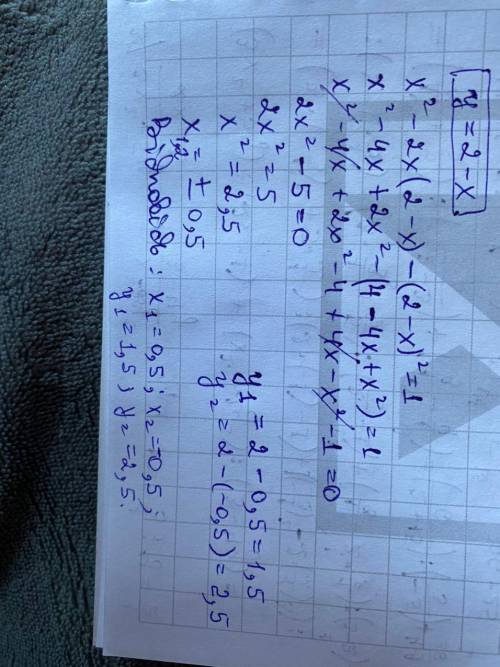 y = 2 - x
x² - 2x(2 - x) - (2 - x)² = 1
x² - 4x + 2x² - (4 - 4x + x²) = 1
x² - 4x + 2x² - 4 + 4x - x² - 1 = 0
2x² - 5 = 0
2x² = 5
x² = 2,5
x₁,₂ = ± 0,5
y₁ = 2 - 0,5 = 1,5
y₂ = 2 - (-0,5) = 2,5
Відповідь: x₁ = 0,5; x₂ = -0,5;
y₁ = 1,5; y₂ = 2,5.